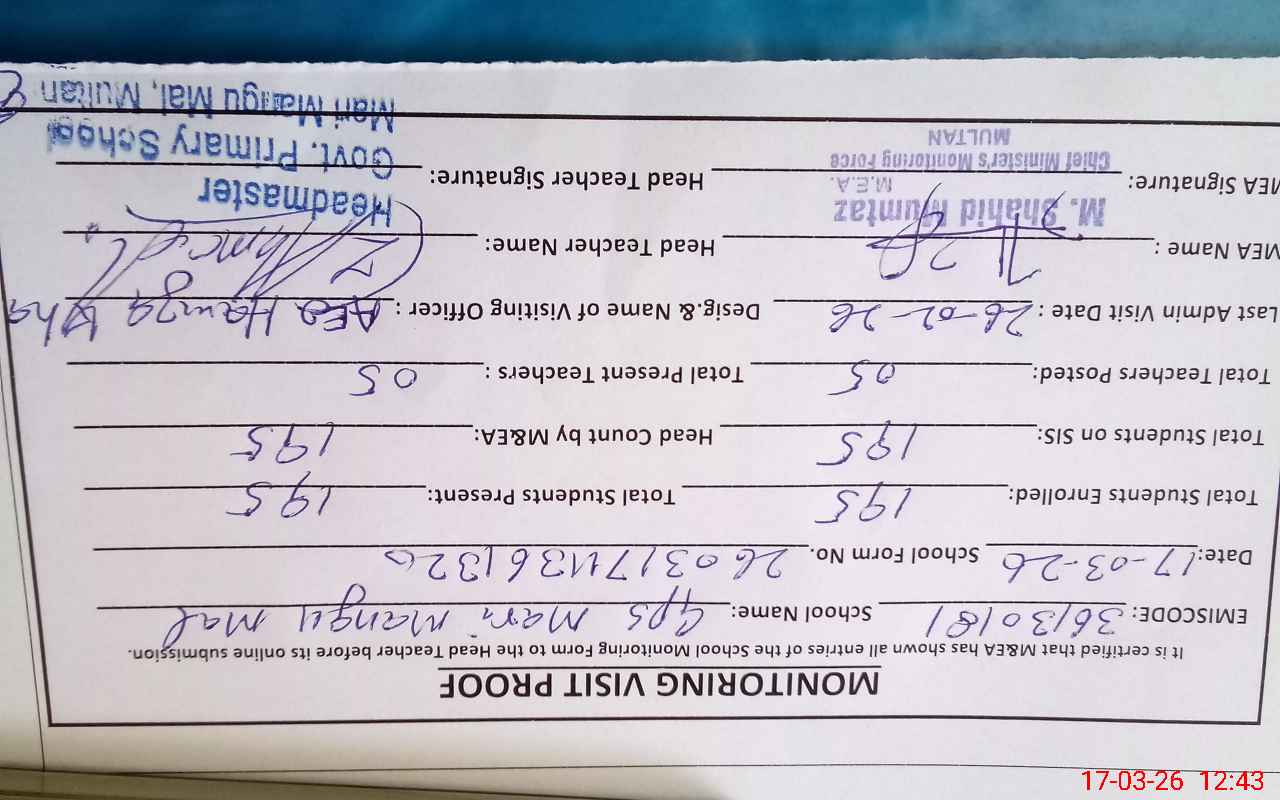 MONITORING VISIT PROOF
It is certified that M&EA has shown all entries of the School Monitoring Form to the Head Teacher before its online submission.
EMISCODE: 36130181 School Name: Gps Mari Mangu Mal
Date: 17-03-26 School Form No. 26031711361320
Total Students Enrolled: 195 Total Students Present: 195
Total Students on SIS: 195 Head Count by M&EA: 195
Total Teachers Posted: 05 Total Present Teachers : 05
Last Admin Visit Date : 26-02-26 Desig.& Name of Visiting Officer : AEO Hamza
MEA Name : Head Teacher Name:
M. Shahid Mumtaz
M.E.A.
Headmaster
MEA Signature: Head Teacher Signature:
Chief Minister's Monitoring Force
MULTAN
Govt. Primary School
Mari Mangu Mal, Multan
17-03-26 12:43